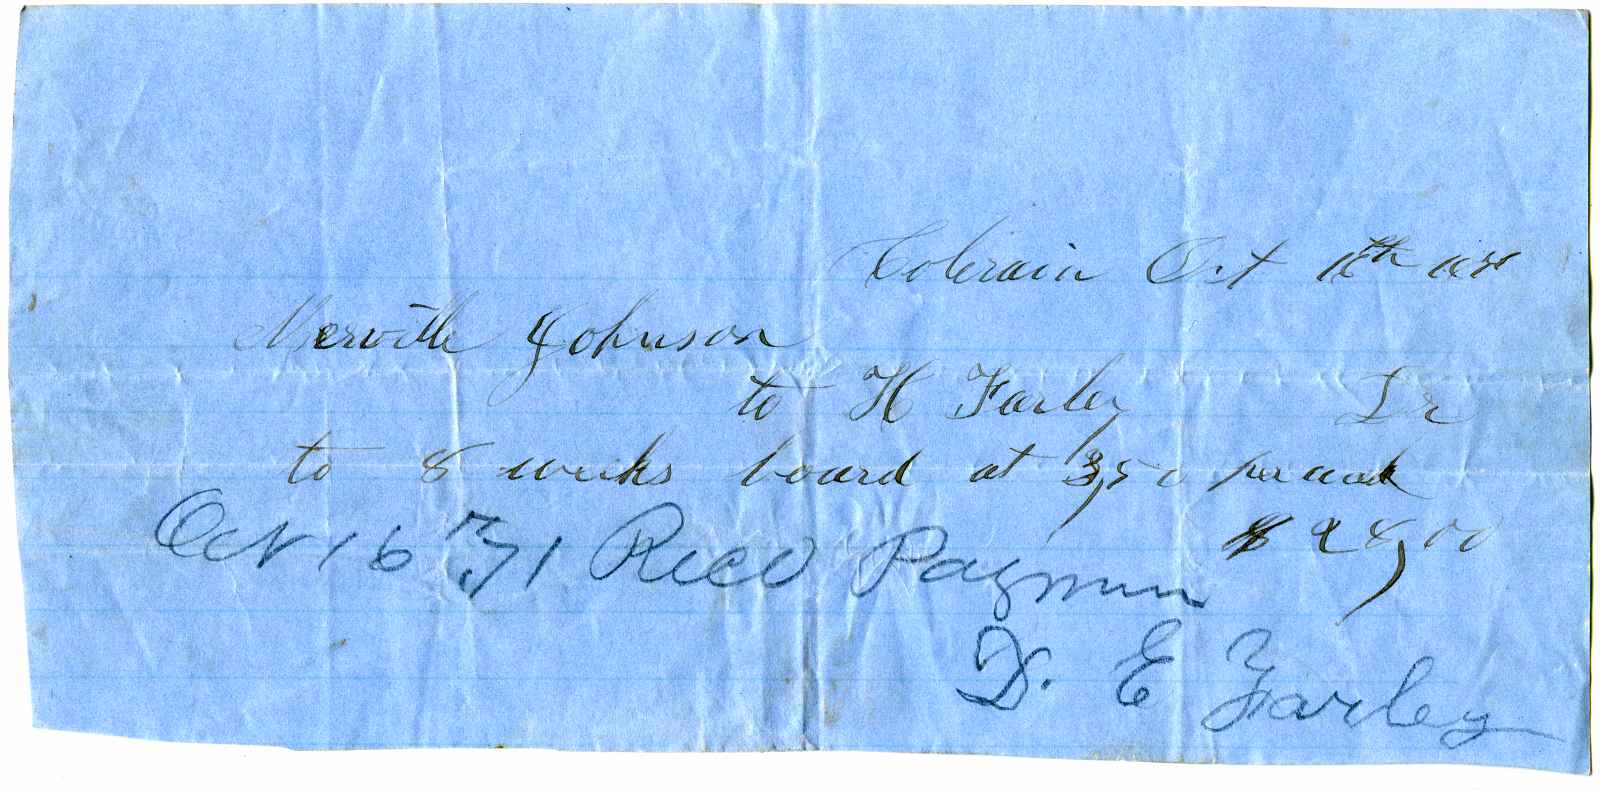 Colerain Oct 16th 1871
Merville Johnson
to H Farley Dr
to 8 weeks board at 3,50 per week
$28,00
Oct 16th 71 Recd Paymen
D. E Farley